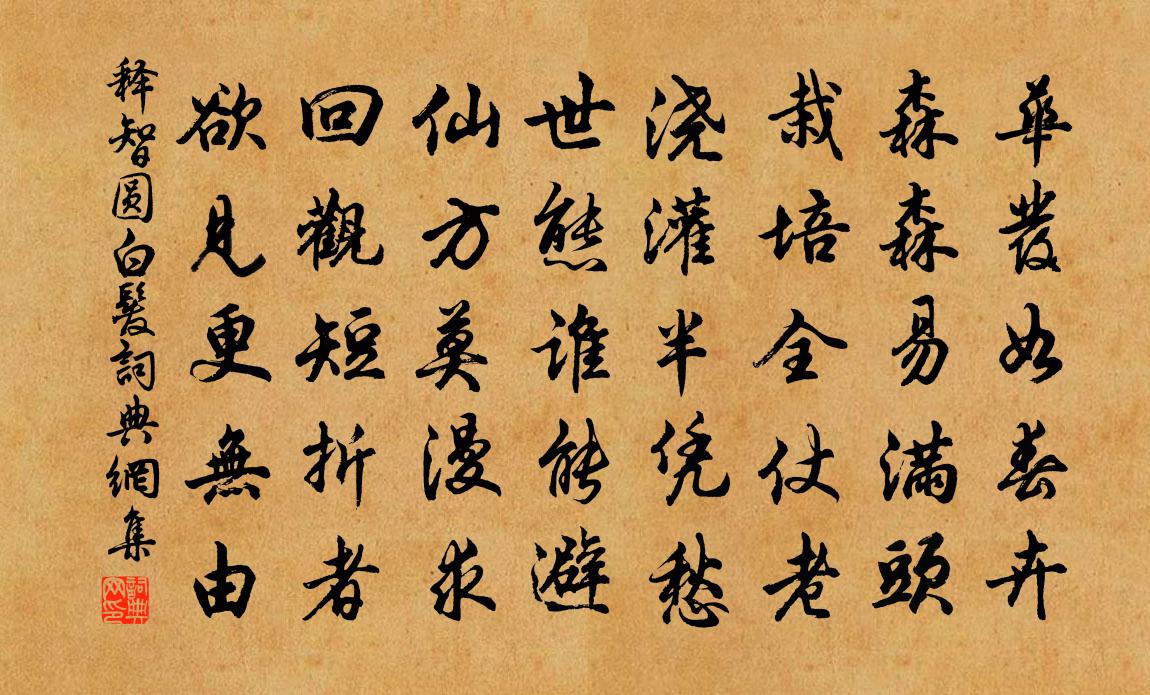 華發如春卉
森森易滿頭
栽培全仗老
浇灌半凭愁
世態誰能避
仙方莫漫求
回觀短折者
欲見更無由
释智圆白髮詞典網集
詞典网印